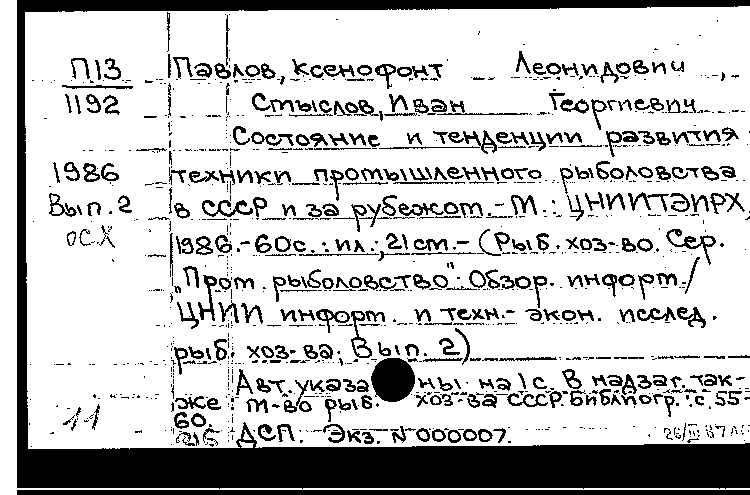 П13 Павлов, Ксенофонт Леонидович,
1192 Смыслов, Иван Георгиевич
Состояние и тенденции развития
1986 техники промышленного рыболовства
Вып. 2 в СССР и за рубежом. - М.: ЦНИИТЭИРХ,
ОСХ 1986. - 60с.: ил.; 21см. - (Рыб. хоз-во. Сер.
"Пром. рыболовство": Обзор. информ./
ЦНИИ информ. и техн.- экон. исслед.
рыб. хоз-ва; Вып. 2)
Авт. указаны на 1с. В надзаг. так-
же: М-во рыб. хоз-ва СССР. Библиогр.: с. 55-
11 60.
ДСП. Экз. N 000007.